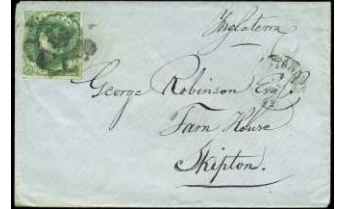 Inglaterra
George Robinson Esq.
Farm House
Skipton.